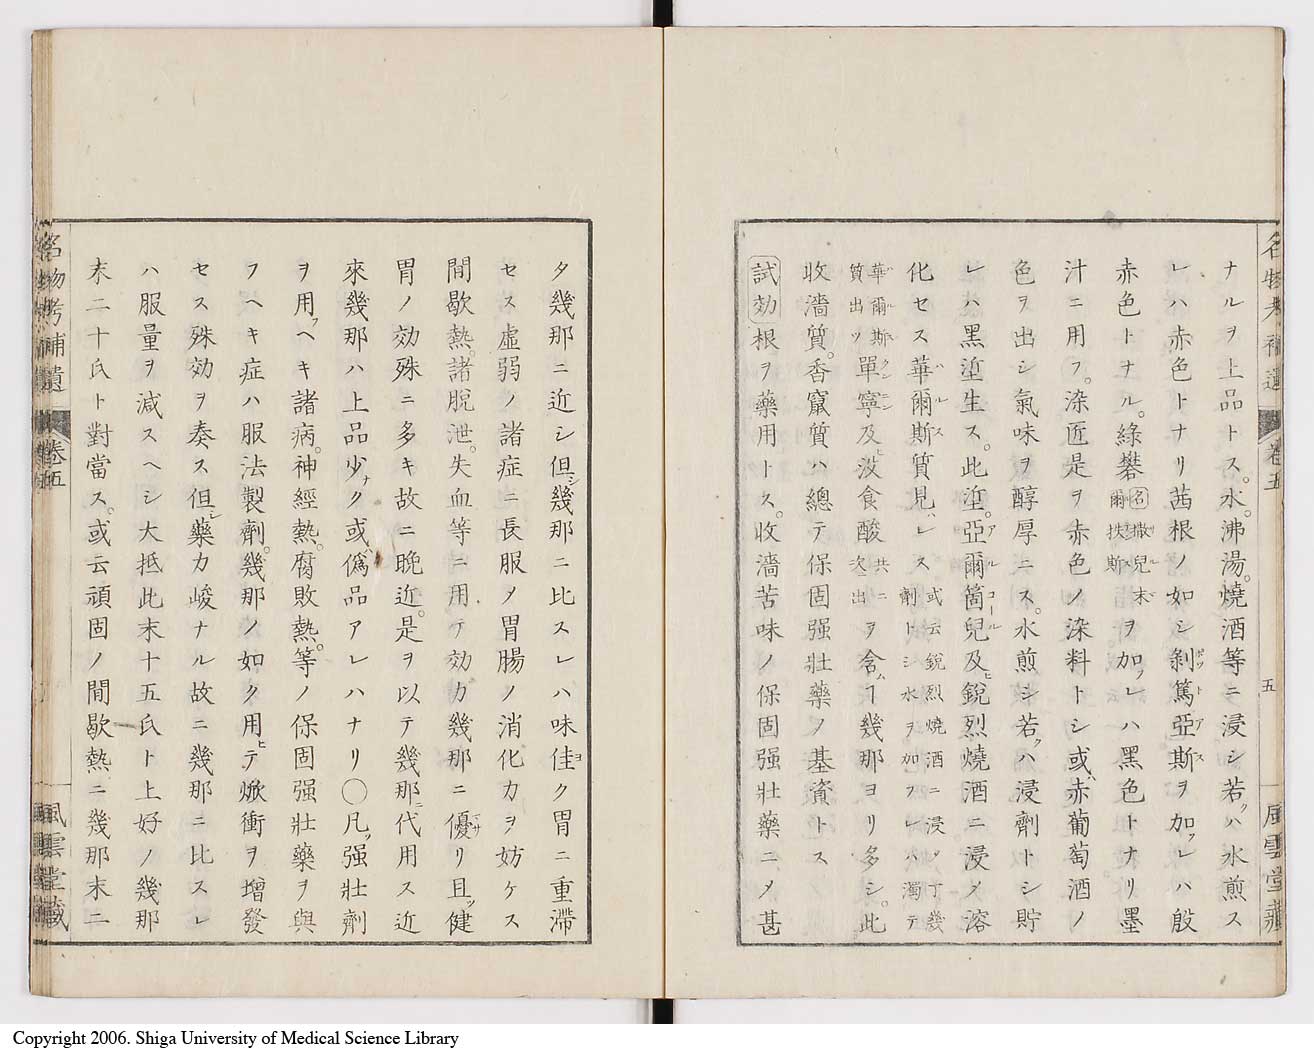 ナルヲ上品トス。水。沸湯。燒酒等ニ浸シ若クハ水煎ス
レハ赤色トナリ茜根ノ如シ剝篤亞斯ヲ加フレハ殷
赤色トナル。綠礬名撒兒末爾扶斯ヲ加フレハ黑色トナリ墨
汁ニ用フ。染匠是ヲ赤色ノ染料トシ或ハ赤葡萄酒ノ
色ヲ出シ氣味ヲ醇厚ニス。水煎シ若クハ浸劑トシ貯
レハ黑埿生ス。此埿。亞爾箇兒及ヒ銳烈燒酒ニ浸メ溶
化セス華爾斯質見ハレス或云銳烈燒酒ニ浸ソ丁幾劑トシ水ヲ加フレハ濁テ華爾斯質出ツ
單寧及ヒ沒食酸共ニ次ニ出ヲ含ムヿ幾那ヨリ多シ。此
收濇質。香竄質ハ總テ保固强壯藥ノ基資トス
試効根ヲ藥用トス。收濇苦味ノ保固强壯藥ニメ甚
名物考補遺 卷五 五 風雲堂藏
タ幾那ニ近シ但シ幾那ニ比スレハ味佳ク胃ニ重滯
セス虛弱ノ諸症ニ長服メ胃腸ノ消化力ヲ妨ケス
間歇熱。諸脫泄。失血等ニ用テ効力幾那ニ優リ且ツ健
胃ノ効殊ニ多キ故ニ晩近。是ヲ以テ幾那ニ代用ス近
來幾那ハ上品少ナク或ハ僞品アレハナリ○凡ソ强壯劑
ヲ用フヘキ諸病。神經熱。腐敗熱。等ノ保固强壯藥ヲ與
フヘキ症ハ服法製劑。幾那ノ如ク用ヒテ焮衝ヲ增發
セス殊効ヲ奏ス但シ藥力峻ナル故ニ幾那ニ比スレ
ハ服量ヲ減スヘシ大抵此末十五氏ト上好ノ幾那
末二十氏ト對當ス。或云頑固ノ間歇熱ニ幾那末二
名物考補遺 卷五 風雲堂藏
Copyright 2006. Shiga University of Medical Science Library